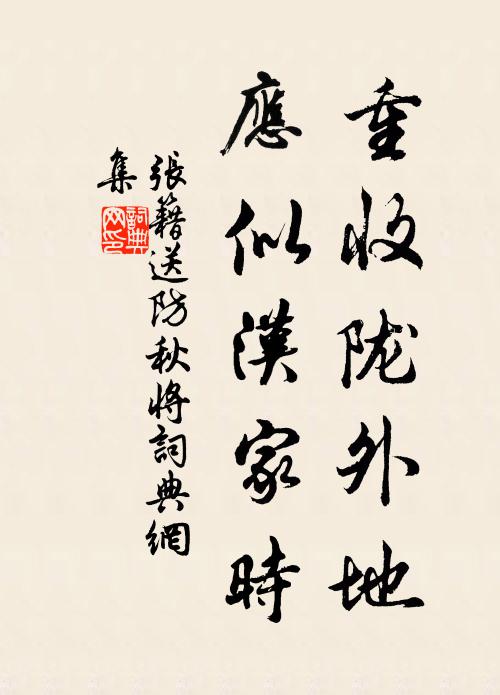 重收陇外地
應似漢家時
張籍送防秋將詞典網
集
詞典网印